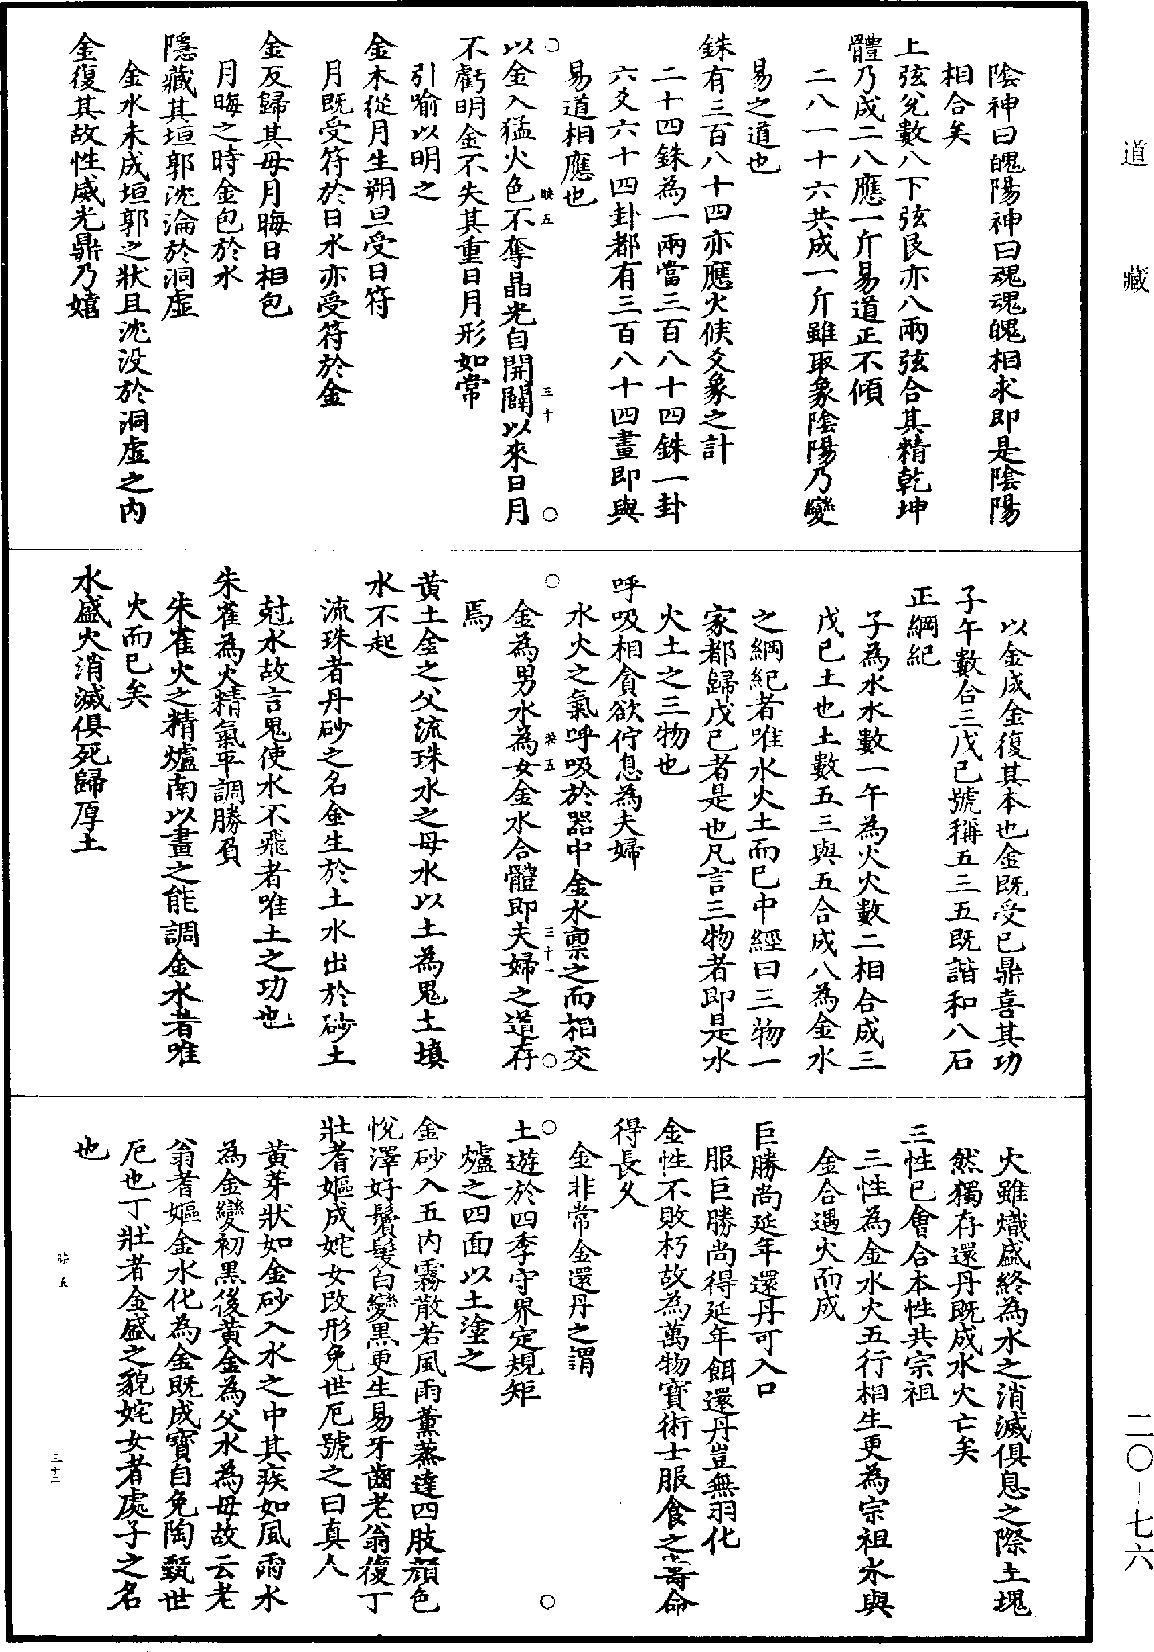 道藏
陰神曰魄陽神曰魂魂魄相求即是陰陽
相合矣
上弦兌數八下弦艮亦八兩弦合其精乾坤
體乃成二八應一斤易道正不傾
二八一十六共成一斤雖取象陰陽乃變
易之道也
銖有三百八十四亦應火候爻象之計
二十四銖為一兩當三百八十四銖一卦
六爻六十四卦都有三百八十四畫即與
易道相應也
映五
三十
以金入猛火色不奪晶光自開闢以來日月
不虧明金不失其重日月形如常
引喻以明之
金本從月生朔旦受日符
月既受符於日水亦受符於金
金反歸其母月晦日相包
月晦之時金包於水
隱藏其垣郭沈淪於洞虛
金水未成垣郭之狀且沈没於洞虛之內
金復其故性威光鼎乃嬉
以金成金復其本也金既受已鼎喜其功
子午數合三戊已號稱五三五既諧和八石
正綱紀
子為水水數一午為火火數二相合成三
戊已土也土數五三與五合成八為金水
之綱紀者唯水火土而已中經曰三物一
家都歸戊已者是也凡言三物者即是水
火土之三物也
呼吸相貪欲佇息為夫婦
水火之氣呼吸於器中金水禀之而相交
五
三十一
金為男水為女金水合體即夫婦之道存
焉
黃土金之父流珠水之母水以土為鬼土填
水不起
流珠者丹砂之名金生於土水出於砂土
尅水故言鬼使水不飛者唯土之功也
朱雀為火精氣平調勝負
朱雀火之精爐南以畫之能調金水者唯
火而已矣
水盛火消滅俱死歸厚土
火雖熾盛終為水之消滅俱息之際土塊
然獨存還丹既成水火亡矣
三性已會合本性共宗祖
三性為金水火五行相生更為宗祖水與
金合遇火而成
巨勝尚延年還丹可入口
服巨勝尚得延年餌還丹豈無羽化
金性不敗朽故為萬物寶術士服食之壽命
得長久
金非常金還丹之謂
土遊於四季守界定規矩
爐之四面以土塗之
金砂入五內霧散若風雨薰蒸達四肢顔色
悅澤好鬢髮白變黑更生易牙齒老翁復丁
壯耆嫗成姹女改形免世厄號之曰真人
黃芽狀如金砂入水之中其疾如風雨水
為金變初黑後黃金為父水為母故云老
翁耆嫗金水化為金既成寶自免陶甄世
厄也丁壯者金盛之貌姹女者處子之名
也
五
三十二
二〇-七六